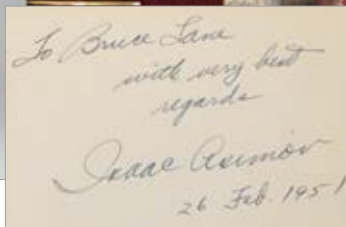 To Bruce Lane
with very best
regards
Isaac Asimov
26 Feb. 1951